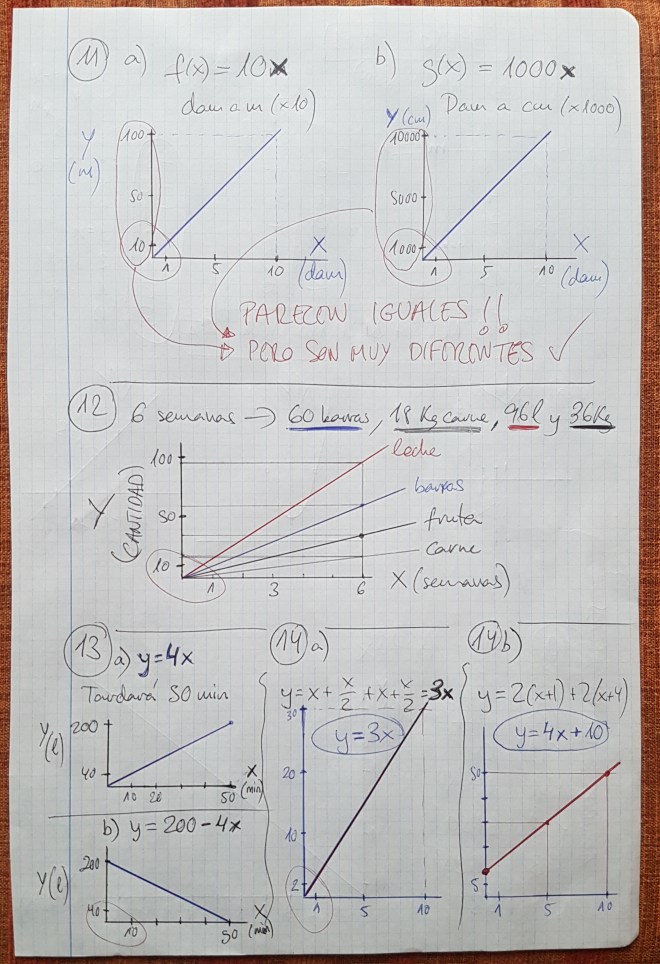 11 a) f(x) = 10x
dam a m (x10)
Y
(m)
100
50
10
1 5 10
X
(dam)
b) g(x) = 1000x
Dam a cm (x1000)
Y (cm)
10000
5000
1000
1 5 10
X
(dam)
PARECEN IGUALES !!
PERO SON MUY DIFERENTES ✓
12 6 semanas → 60 barras, 18 Kg carne, 96l y 36Kg
Y
(CANTIDAD)
100
50
10
1 3 6
X (semanas)
leche
barras
fruta
carne
13 a) y=4x
Tardará 50 min
Y(l)
200
40
10 20 50
X
(min)
b) y = 200 - 4x
Y(l)
200
40
10 50
X
(min)
14 a)
y = x + x/2 + x + x/2 = 3x
y = 3x
30
20
10
2
1 5 10
14 b)
y = 2(x+1) + 2(x+4)
y = 4x + 10
50
5
1 5 10